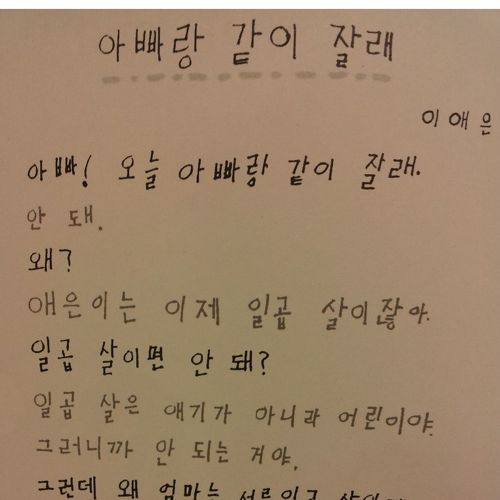 아빠랑 같이 잘래
이애은
아빠! 오늘 아빠랑 같이 잘래.
안 돼.
왜?
애은이는 이제 일곱 살이잖아.
일곱 살이면 안 돼?
일곱 살은 애기가 아니라 어린이야.
그러니까 안 되는 거야.
그런데 왜 엄마는